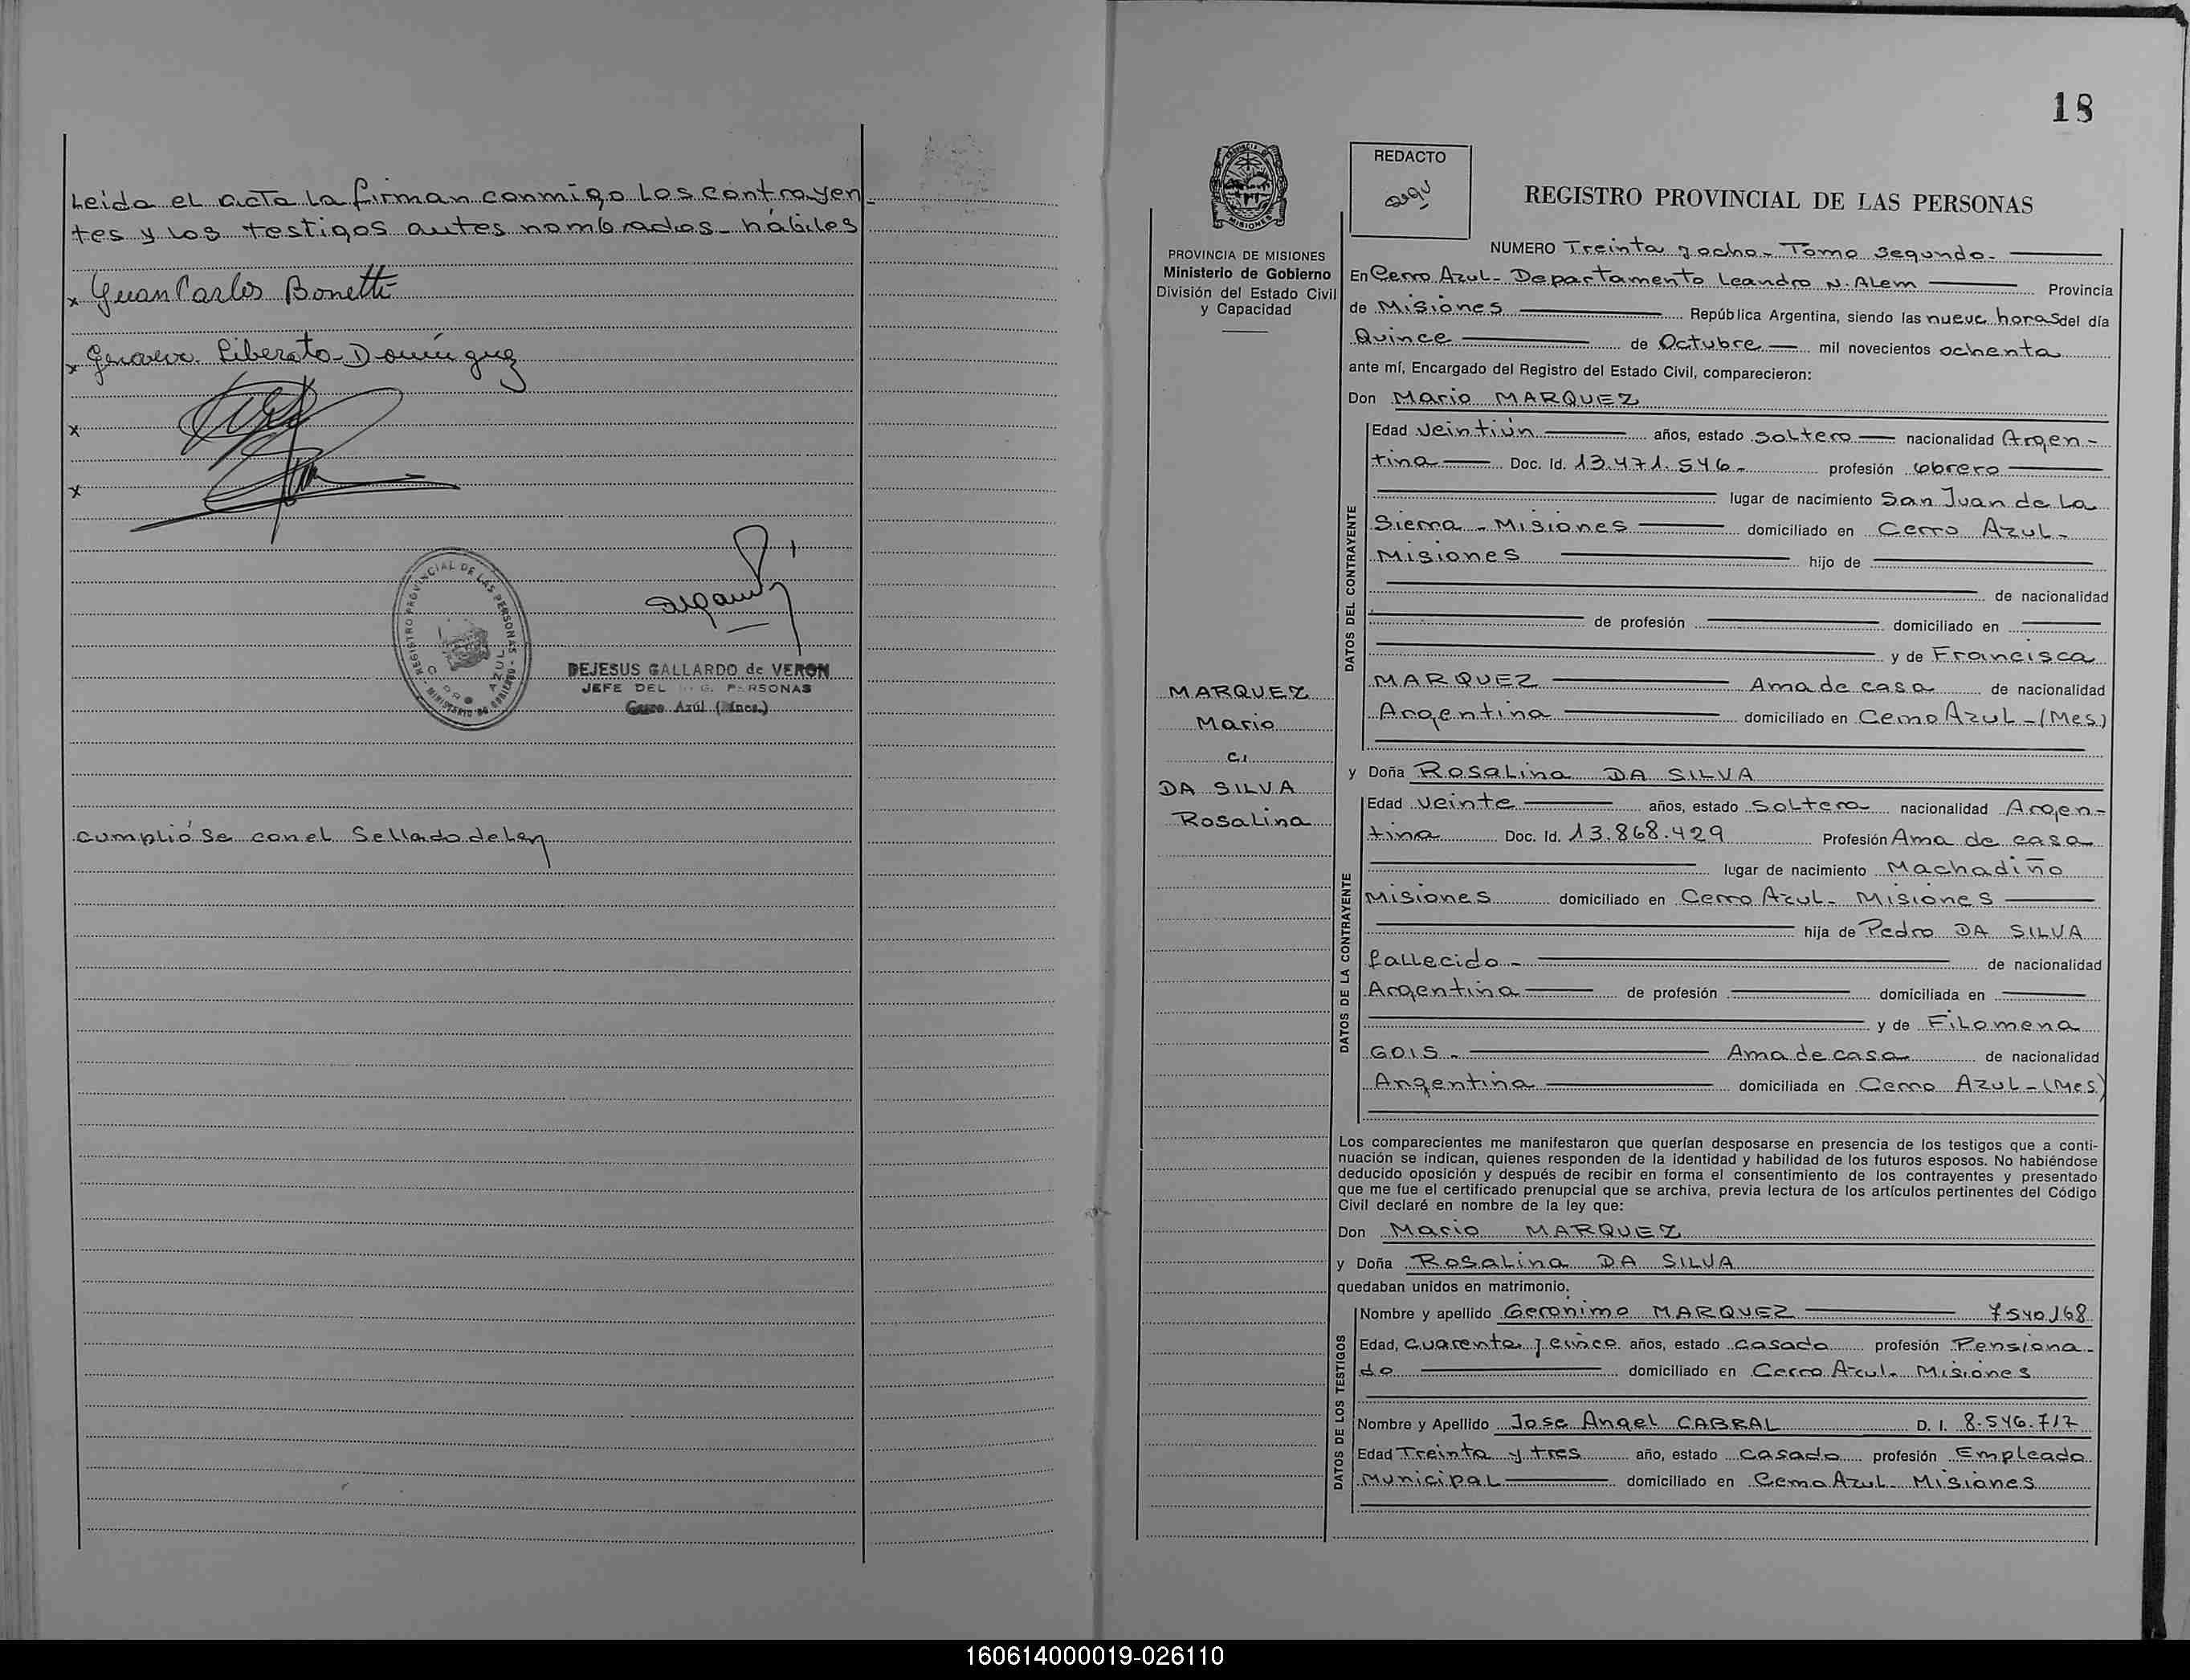 Leida el acta la firman conmigo los contrayen-
tes y los testigos antes nombrados - hábiles
x Juan Carlos Bonetti
x Genoveva Liberato Domínguez
x
x
REGISTRO PROVINCIAL DE LAS PERSONAS
MINISTERIO DE GOBIERNO
CERRO AZUL
DEJESUS GALLARDO de VERON
JEFE DEL PERSONAS
Cerro Azúl (Mnes.)
cumplióse con el Sellado de Ley
18
PROVINCIA DE
MISIONES
PROVINCIA DE MISIONES
Ministerio de Gobierno
División del Estado Civil
y Capacidad
MARQUEZ
Mario
C.
DA SILVA
Rosalina
REDACTO
REGISTRO PROVINCIAL DE LAS PERSONAS
NUMERO Treinta y ocho - Tomo Segundo -
En Cerro Azul - Departamento Leandro N. Alem Provincia
de Misiones República Argentina, siendo las nueve horas del día
Quince de Octubre mil novecientos ochenta
ante mí, Encargado del Registro del Estado Civil, comparecieron:
Don Mario MARQUEZ
DATOS DEL CONTRAYENTE
Edad Veintiún años, estado soltero nacionalidad Argen-
tina Doc. Id. 13.471.546 - profesión obrero
lugar de nacimiento San Juan de La
Sierra - Misiones domiciliado en Cerro Azul -
Misiones hijo de
de nacionalidad
de profesión domiciliado en
y de Francisca
MARQUEZ Ama de casa de nacionalidad
Argentina domiciliado en Cerro Azul - (Mes.)
y Doña Rosalina DA SILVA
DATOS DE LA CONTRAYENTE
Edad Veinte años, estado Soltera nacionalidad Argen-
tina Doc. Id. 13.868.429 Profesión Ama de casa
lugar de nacimiento Machadiño
Misiones domiciliado en Cerro Azul - Misiones
hija de Pedro DA SILVA
fallecido - de nacionalidad
Argentina de profesión domiciliada en
y de Filomena
GOIS - Ama de casa de nacionalidad
Argentina domiciliada en Cerro Azul - (Mes.)
Los comparecientes me manifestaron que querían desposarse en presencia de los testigos que a conti-
nuación se indican, quienes responden de la identidad y habilidad de los futuros esposos. No habiéndose
deducido oposición y después de recibir en forma el consentimiento de los contrayentes y presentado
que me fue el certificado prenupcial que se archiva, previa lectura de los artículos pertinentes del Código
Civil declaré en nombre de la ley que:
Don Mario MARQUEZ
y Doña Rosalina DA SILVA
quedaban unidos en matrimonio.
DATOS DE LOS TESTIGOS
Nombre y apellido Geronimo MARQUEZ 7540168
Edad, Cuarenta y cinco años, estado casado profesión Pensiona-
do domiciliado en Cerro Azul - Misiones
Nombre y Apellido Jose Angel CABRAL D. I. 8.546.717
Edad Treinta y tres año, estado casado profesión Empleado
Municipal domiciliado en Cerro Azul - Misiones
160614000019-026110